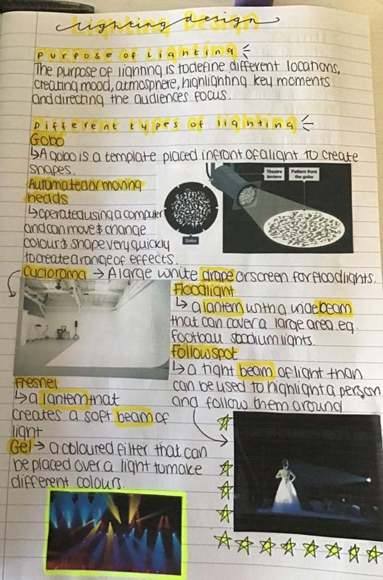 Lighting Design
Purpose of lighting
The purpose of lighting is to define different locations,
creating mood, atmosphere, highlighting key moments
and directing the audiences focus.
Different types of lighting
Gobo
↳ A gobo is a template placed infront of a light to create
shapes.
Automated or moving
heads
↳ operated using a computer
and can move & change
colours & shape very quickly
to create a range of effects.
Theatre lantern
Pattern from the gobo
Gobo
Cyclorama → A large white drape or screen for floodlights.
Floodlight
↳ a lantern with a wide beam
that can cover a large area eg.
football stadium lights.
Followspot
↳ a tight beam of light than
can be used to highlight a person
and follow them around
Fresnel
↳ a lantern that
creates a soft beam of
light
Gel → a coloured filter that can
be placed over a light to make
different colours.